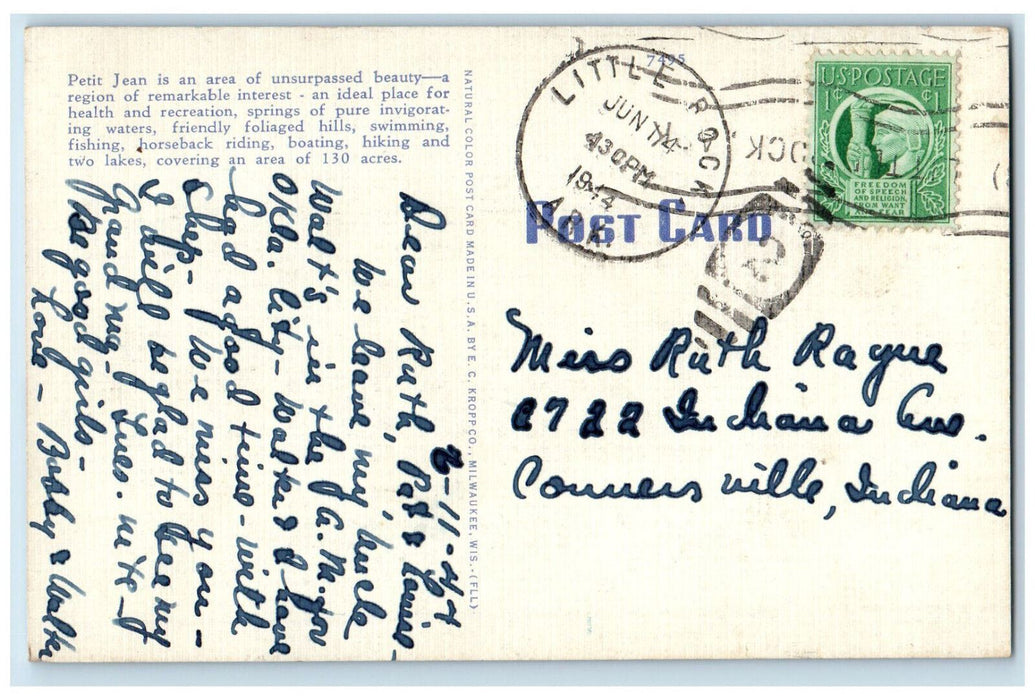 Petit Jean is an area of unsurpassed beauty—a
region of remarkable interest - an ideal place for
health and recreation, springs of pure invigorat-
ing waters, friendly foliaged hills, swimming,
fishing, horseback riding, boating, hiking and
two lakes, covering an area of 130 acres.
6-11-44
Dear Ruth,
We leave my uncle
Walt's in the A.M. for
Okla. City - Walter & I have
had a good time - with
Chep - We miss you -
& will be glad to be in my
Grand my - Tues. nite -
Be good girls -
Love - Bobby & Walter
NATURAL COLOR POST CARD MADE IN U.S.A. BY E. C. KROPP CO., MILWAUKEE, WIS.-(FLL)
7495
LITTLE ROCK
JUN 14
430PM
1944
ARK.
OCK
2
U.S. POSTAGE
1¢ 1¢
FREEDOM
OF SPEECH
AND RELIGION,
FROM WANT
AND FEAR
POST CARD
Miss Ruth Rague
2722 Indiana Ave.
Connersville, Indiana